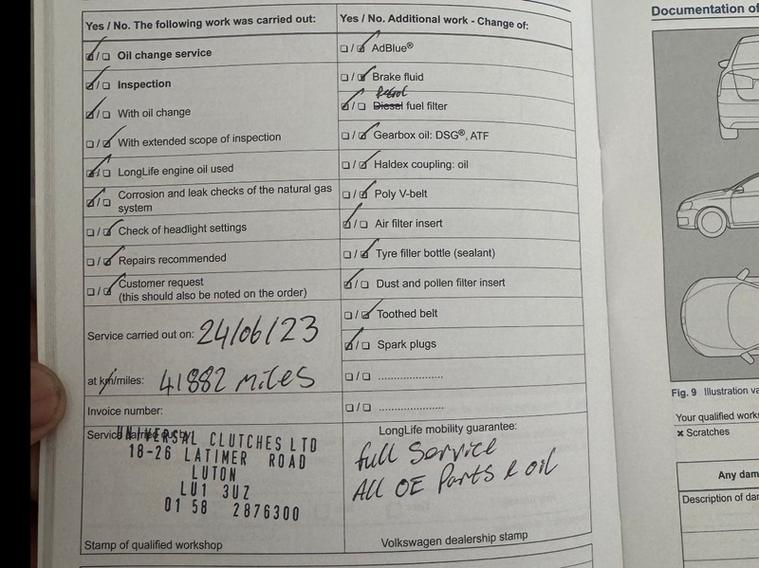 Yes / No. The following work was carried out:
☑/☐ Oil change service
☑/☐ Inspection
☑/☐ With oil change
☐/☑ With extended scope of inspection
☑/☐ LongLife engine oil used
☑/☐ Corrosion and leak checks of the natural gas
system
☐/☑ Check of headlight settings
☐/☑ Repairs recommended
☐/☑ Customer request
(this should also be noted on the order)
Service carried out on: 24/06/23
at km/miles: 41882 miles
Invoice number:
UNIVERSAL CLUTCHES LTD
18-26 LATIMER ROAD
LUTON
LU1 3UZ
01 58 2876300
Stamp of qualified workshop
Yes / No. Additional work - Change of:
☐/☑ AdBlue®
☐/☑ Brake fluid
Petrol
☑/☐ Diesel fuel filter
☐/☑ Gearbox oil: DSG®, ATF
☐/☑ Haldex coupling: oil
☐/☑ Poly V-belt
☑/☐ Air filter insert
☐/☑ Tyre filler bottle (sealant)
☑/☐ Dust and pollen filter insert
☐/☑ Toothed belt
☑/☐ Spark plugs
☐/☐ .....................
☐/☐ .....................
LongLife mobility guarantee:
full Service
All OE Parts & oil
Volkswagen dealership stamp
Documentation of
Fig. 9 Illustration
Your qualified
× Scratches
Any
Description of